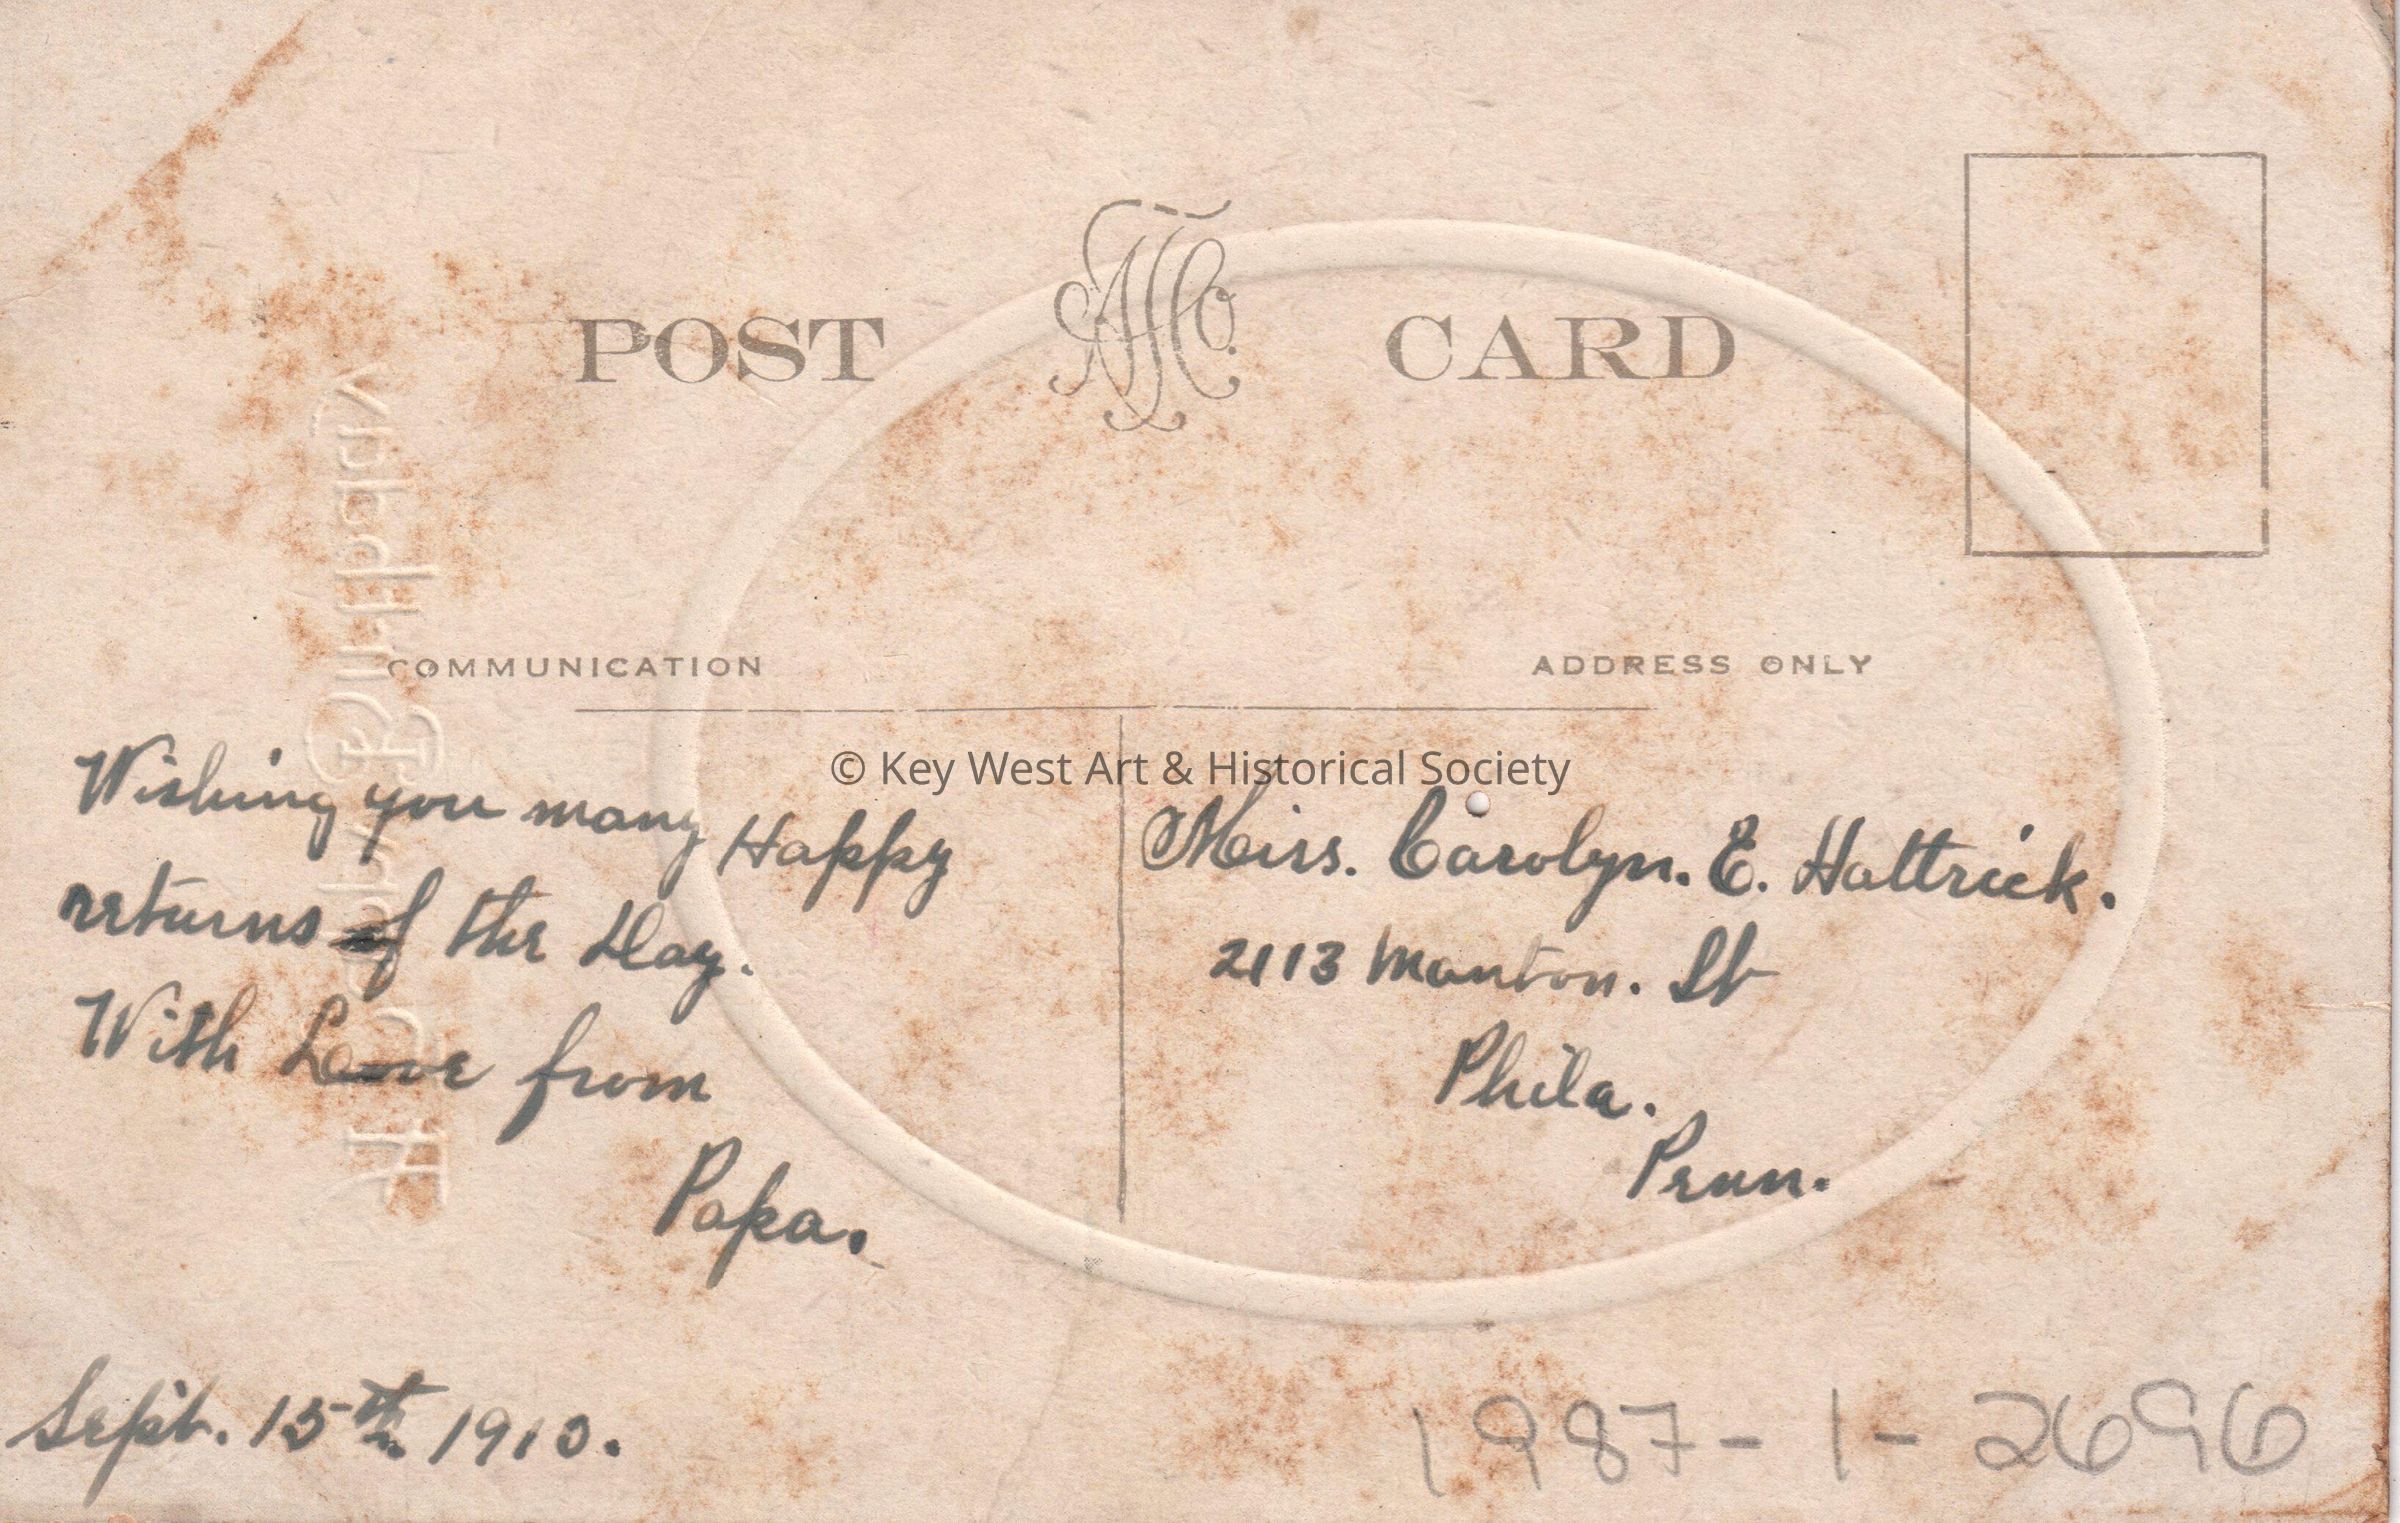 POST CARD
COMMUNICATION
ADDRESS ONLY
© Key West Art & Historical Society
Wishing you many Happy
returns of the Day.
With Love from
Papa.
Sept. 15th 1910.
Miss. Carolyn. E. Hattrick.
2113 Manton. St
Phila.
Penn.
1987-1-2696